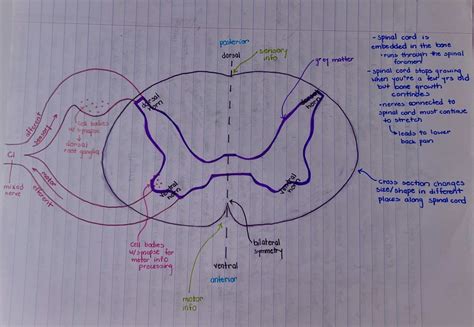 posterior
dorsal
sensory
info
grey matter
dorsal
horn
dorsal
horn
afferent
sensory
cell bodies
w/synapse
↓
dorsal
root ganglia
C1
↓
mixed
nerve
motor
efferent
ventral
horn
ventral
horn
cell bodies
w/synapse for
motor info
processing
bilateral
symmetry
ventral
anterior
motor
info
- spinal cord is
embedded in the bone
- runs through the spinal
foramen
- spinal cord stops growing
when you're a few yrs old
but bone growth
continues
- nerves connected to
spinal cord must continue
to stretch
↳ leads to lower
back pain
- cross section changes
size/shape in different
places along spinal cord